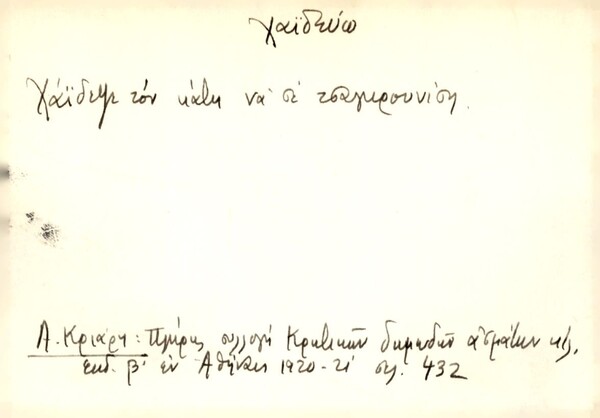 Χαϊδεύω
Χάϊδεψε τόν κάτη νά σέ τσαγκρουνίση.
Α. Κριάρη: Πλήρης συλλογή Κρητικῶν δημωδῶν ᾀσμάτων κτλ.
ἔκδ. β' ἐν Ἀθήναις 1920-21 σελ. 432